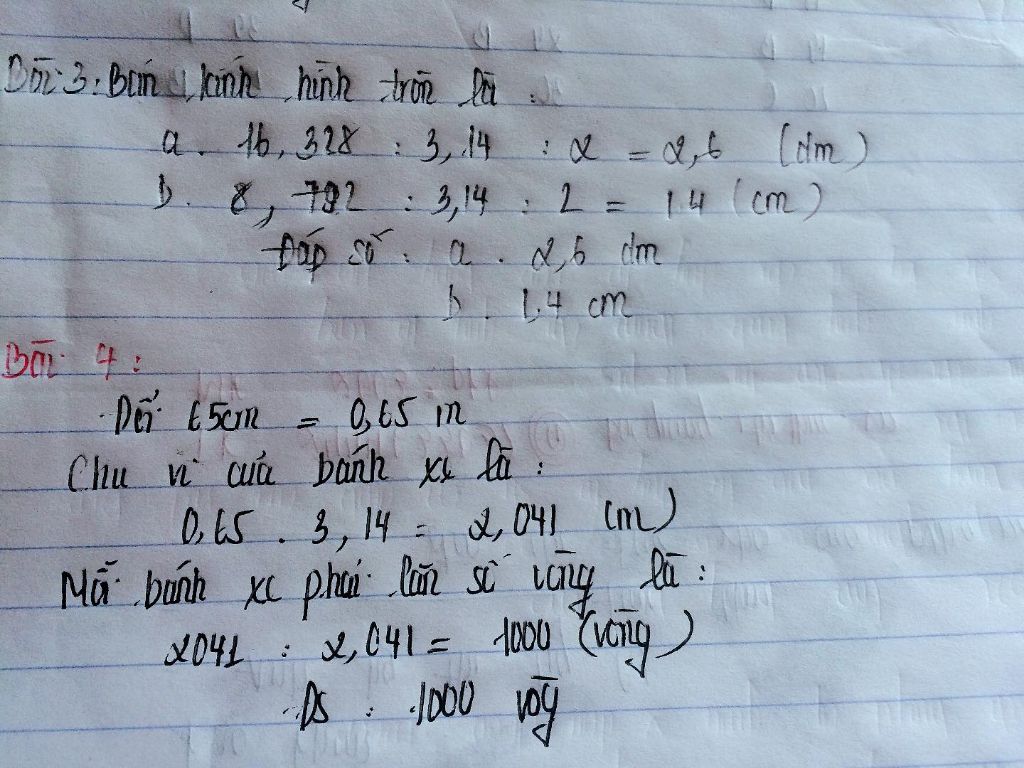 Bài 3: Bán kính hình tròn là :
a. 16,328 : 3,14 : 2 = 2,6 (dm)
b. 8,792 : 3,14 : 2 = 1.4 (cm)
Đáp số : a. 2,6 dm
b. 1,4 cm
Bài 4 :
Đổi 65cm = 0,65 m
Chu vi của bánh xe là :
0,65 . 3,14 = 2,041 (m)
Mỗi bánh xe phải lăn số vòng là :
2041 : 2,041 = 1000 (vòng)
Đs : 1000 vòg